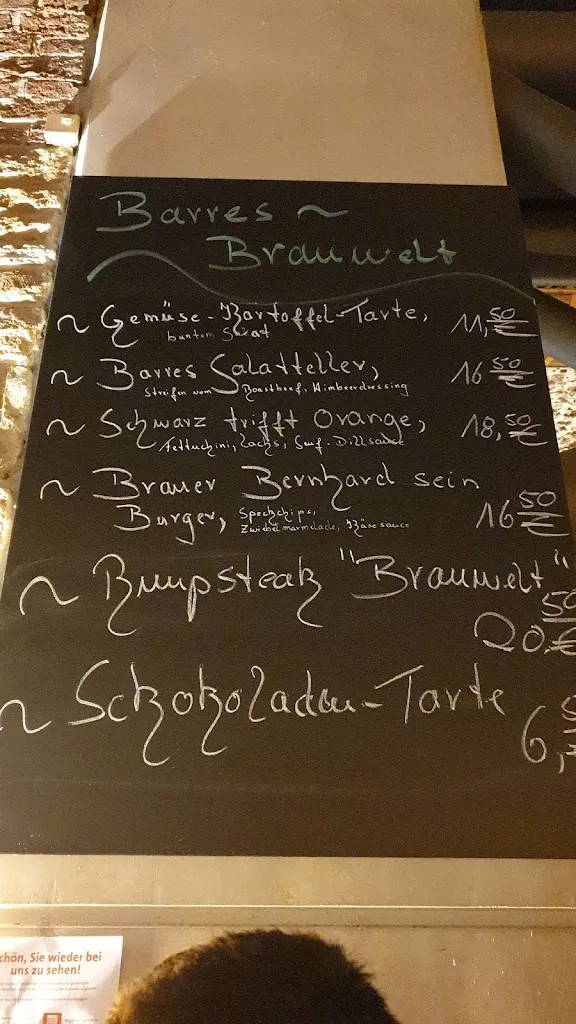 Barres ~
Brauwelt
~ Gemüse-Kartoffel-Tarte, 11,50 €
bunten Salat
~ Barres Salatteller, 16 50 €
Streifen vom Roastbeef, Himbeerdressing
~ Schwarz trifft Orange, 18,50 €
Fettuchini, Lachs, Senf-Dillsauce
~ Brauer Bernhard sein
Burger, Speckchips, 16 50 €
Zwiebelmarmelade, Käsesauce
~ Rumpsteak "Brauwelt"
20,50 €
~ Schokoladen-Tarte
6,5
chön, Sie wieder bei
uns zu sehen!